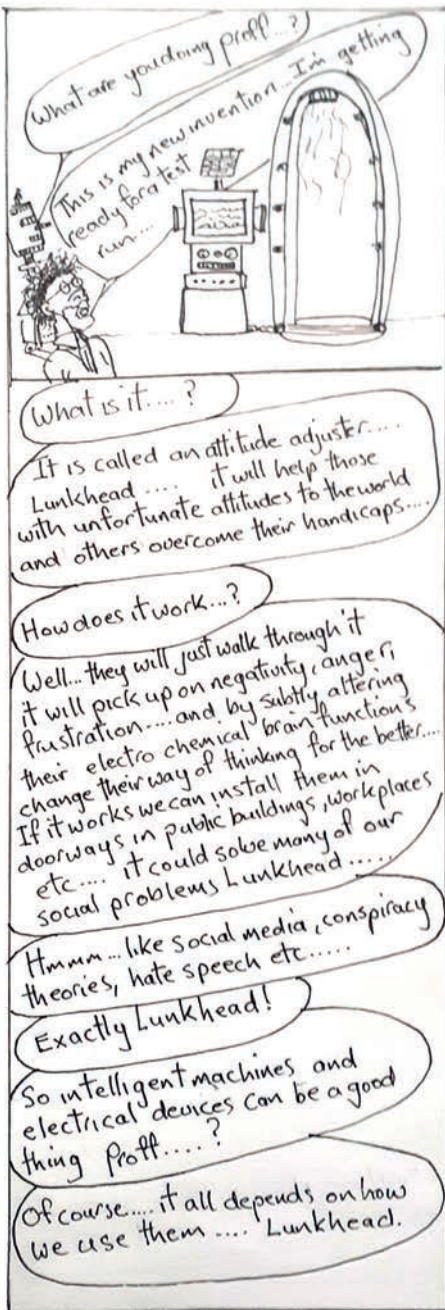 What are you doing proff...?
This is my new invention...I'm getting
ready for a test
run...
What is it....?
It is called an attitude adjuster.....
Lunkhead .... it will help those
with unfortunate attitudes to the world
and others overcome their handicaps....
How does it work...?
Well... they will just walk through it
it will pick up on negativity, anger,
frustration.... and by subtly altering
their electro chemical brain function's
change their way of thinking for the better....
If it works we can install them in
doorways in public buildings, workplaces
etc.... it could solve many of our
social problems Lunkhead.....
Hmmm... like social media, conspiracy
theories, hate speech etc.....
Exactly Lunkhead!
So intelligent machines and
electrical devices can be a good
thing Proff....?
Of course.... it all depends on how
we use them .... Lunkhead.